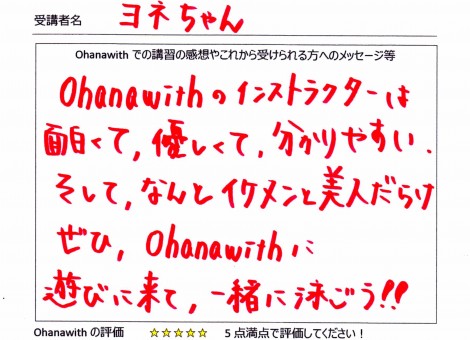 受講者名 ヨネちゃん
Ohanawith での講習の感想やこれから受けられる方へのメッセージ等
Ohanawithのインストラクターは
面白くて,優しくて,分かりやすい.
そして,なんとイケメンと美人だらけ
ぜひ, Ohanawithに
遊びに来て,一緒に泳ごう!!
Ohanawith の評価 ☆☆☆☆☆ 5点満点で評価してください!